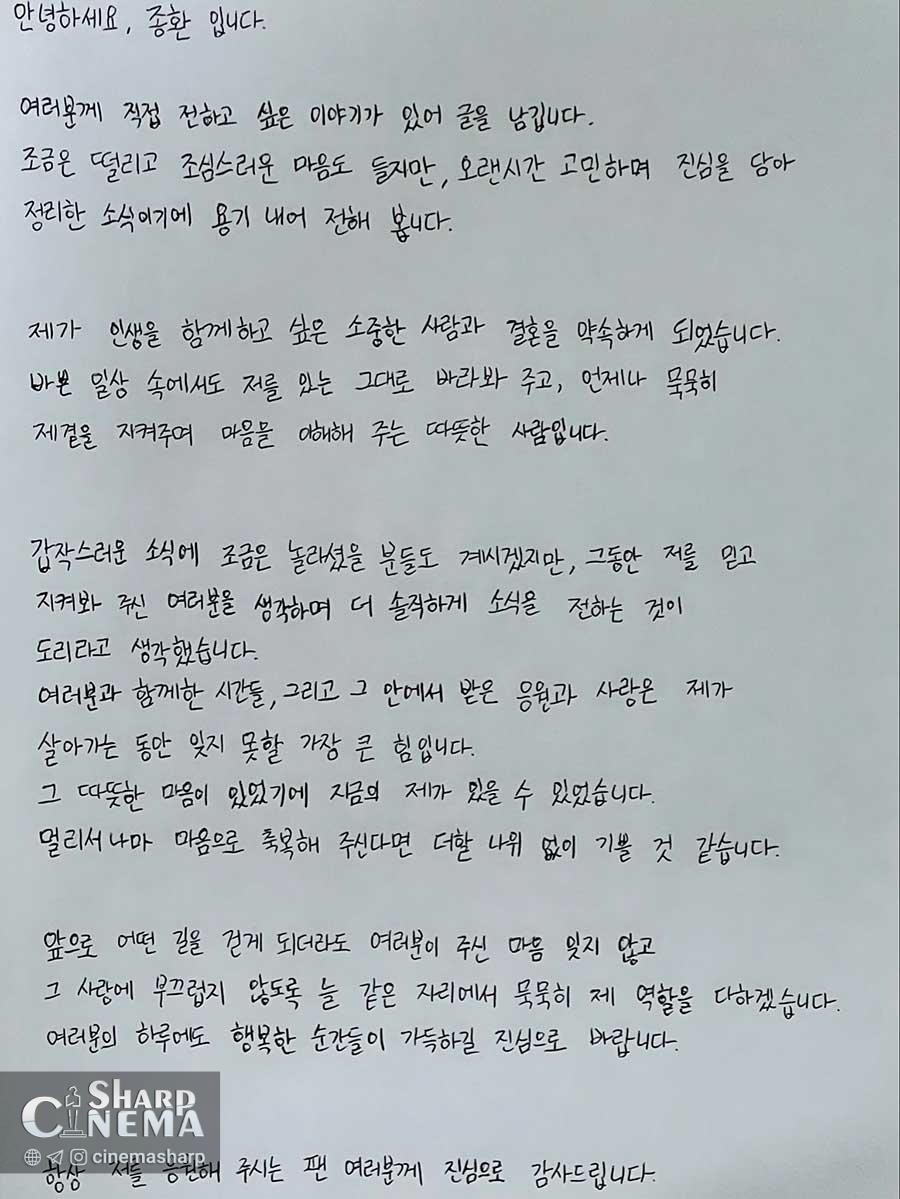 안녕하세요, 종환 입니다.
여러분께 직접 전하고 싶은 이야기가 있어 글을 남깁니다.
조금은 떨리고 조심스러운 마음도 들지만, 오랜시간 고민하며 진심을 담아
정리한 소식이기에 용기 내어 전해 봅니다.
제가 인생을 함께하고 싶은 소중한 사람과 결혼을 약속하게 되었습니다.
바쁜 일상 속에서도 저를 있는 그대로 바라봐 주고, 언제나 묵묵히
제곁을 지켜주며 마음을 이해해 주는 따뜻한 사람입니다.
갑작스러운 소식에 조금은 놀라셨을 분들도 계시겠지만, 그동안 저를 믿고
지켜봐 주신 여러분을 생각하며 더 솔직하게 소식을 전하는 것이
도리라고 생각했습니다.
여러분과 함께한 시간들, 그리고 그 안에서 받은 응원과 사랑은 제가
살아가는 동안 잊지 못할 가장 큰 힘입니다.
그 따뜻한 마음이 있었기에 지금의 제가 있을 수 있었습니다.
멀리서나마 마음으로 축복해 주신다면 더할 나위 없이 기쁠 것 같습니다.
앞으로 어떤 길을 걷게 되더라도 여러분이 주신 마음 잊지 않고
그 사랑에 부끄럽지 않도록 늘 같은 자리에서 묵묵히 제 역할을 다하겠습니다.
여러분의 하루에도 행복한 순간들이 가득하길 진심으로 바랍니다.
SHARP
CINEMA
cinemasharp
항상 저를 응원해 주시는 팬 여러분께 진심으로 감사드립니다.